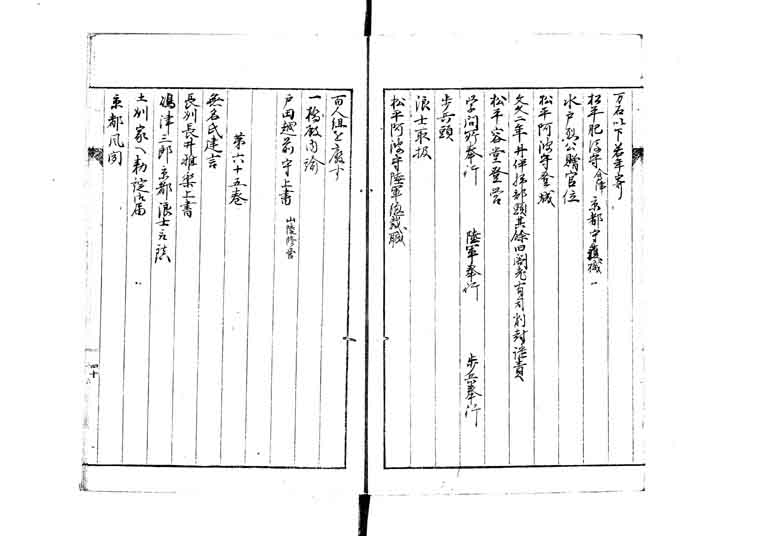 万石以下若年寄
松平肥後守会津京都守護職
水戸烈公贈官位
松平阿波守登城
文久二年井伊掃部頭其余四閣老有司削封譴責
松平容堂登営
学問所奉行　陸軍奉行　歩兵奉行
歩兵頭
浪士取扱
松平阿波守陸軍総裁職
百人組を廃す
一橋殿内諭
戸田越前守上書 山陵修営
第六十五巻
無名氏建言
長州長井雅楽上書
嶋津三郎京都浪士
土州家へ勅諚御届
京都風聞
四十